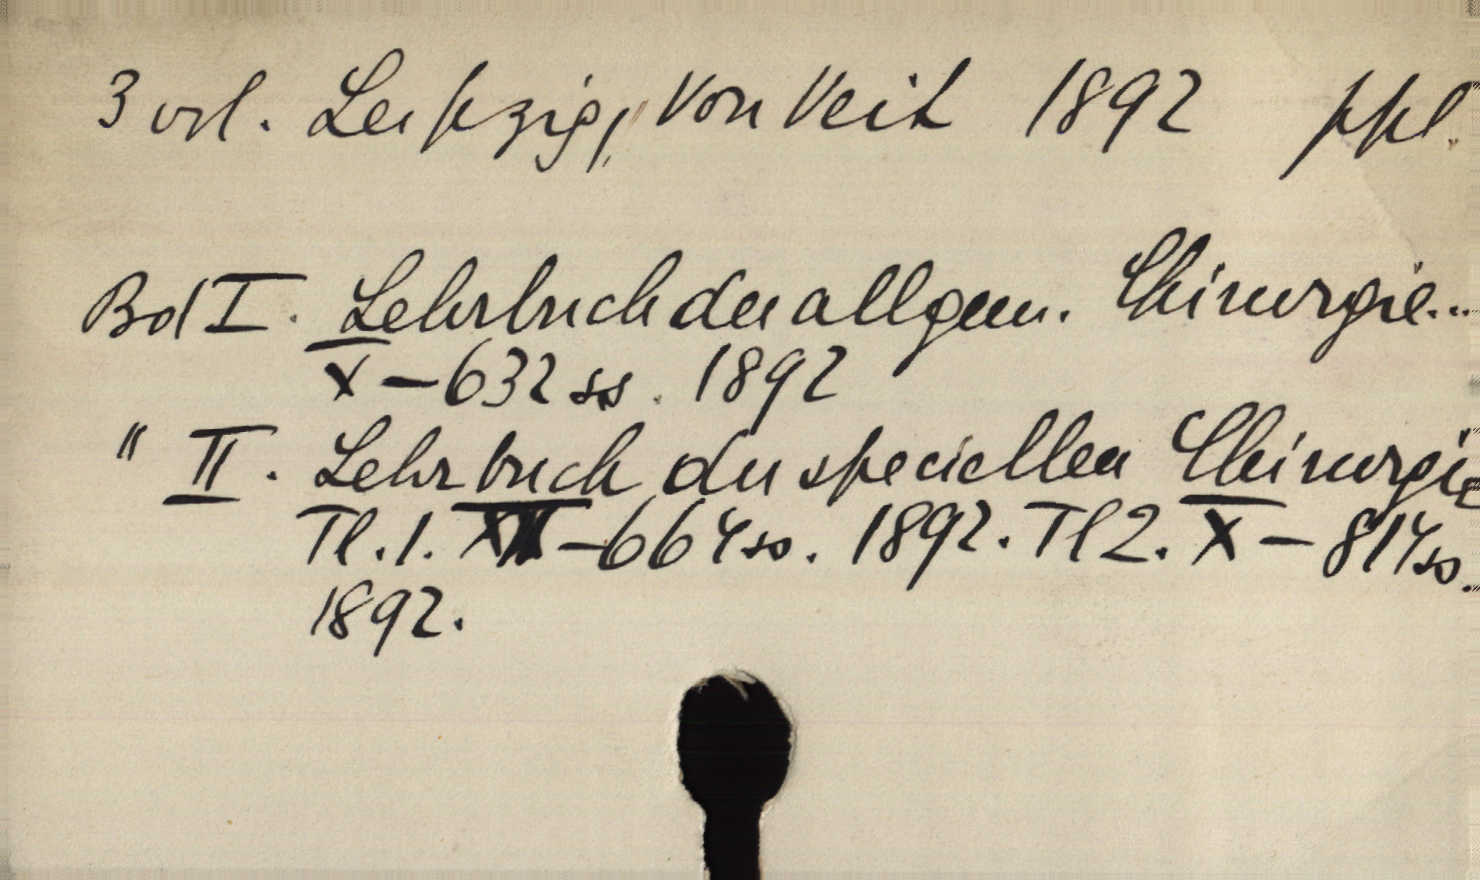 3 vol. Leipzig, Von Veit 1892 ppl.
Bd I. Lehrbuch der allgem. Chirurgie...
X – 632 ss. 1892
" II. Lehrbuch der speciellen Chirurgie
Tl. 1. XII – 664 ss. 1892. Tl 2. X – 814 ss.
1892.